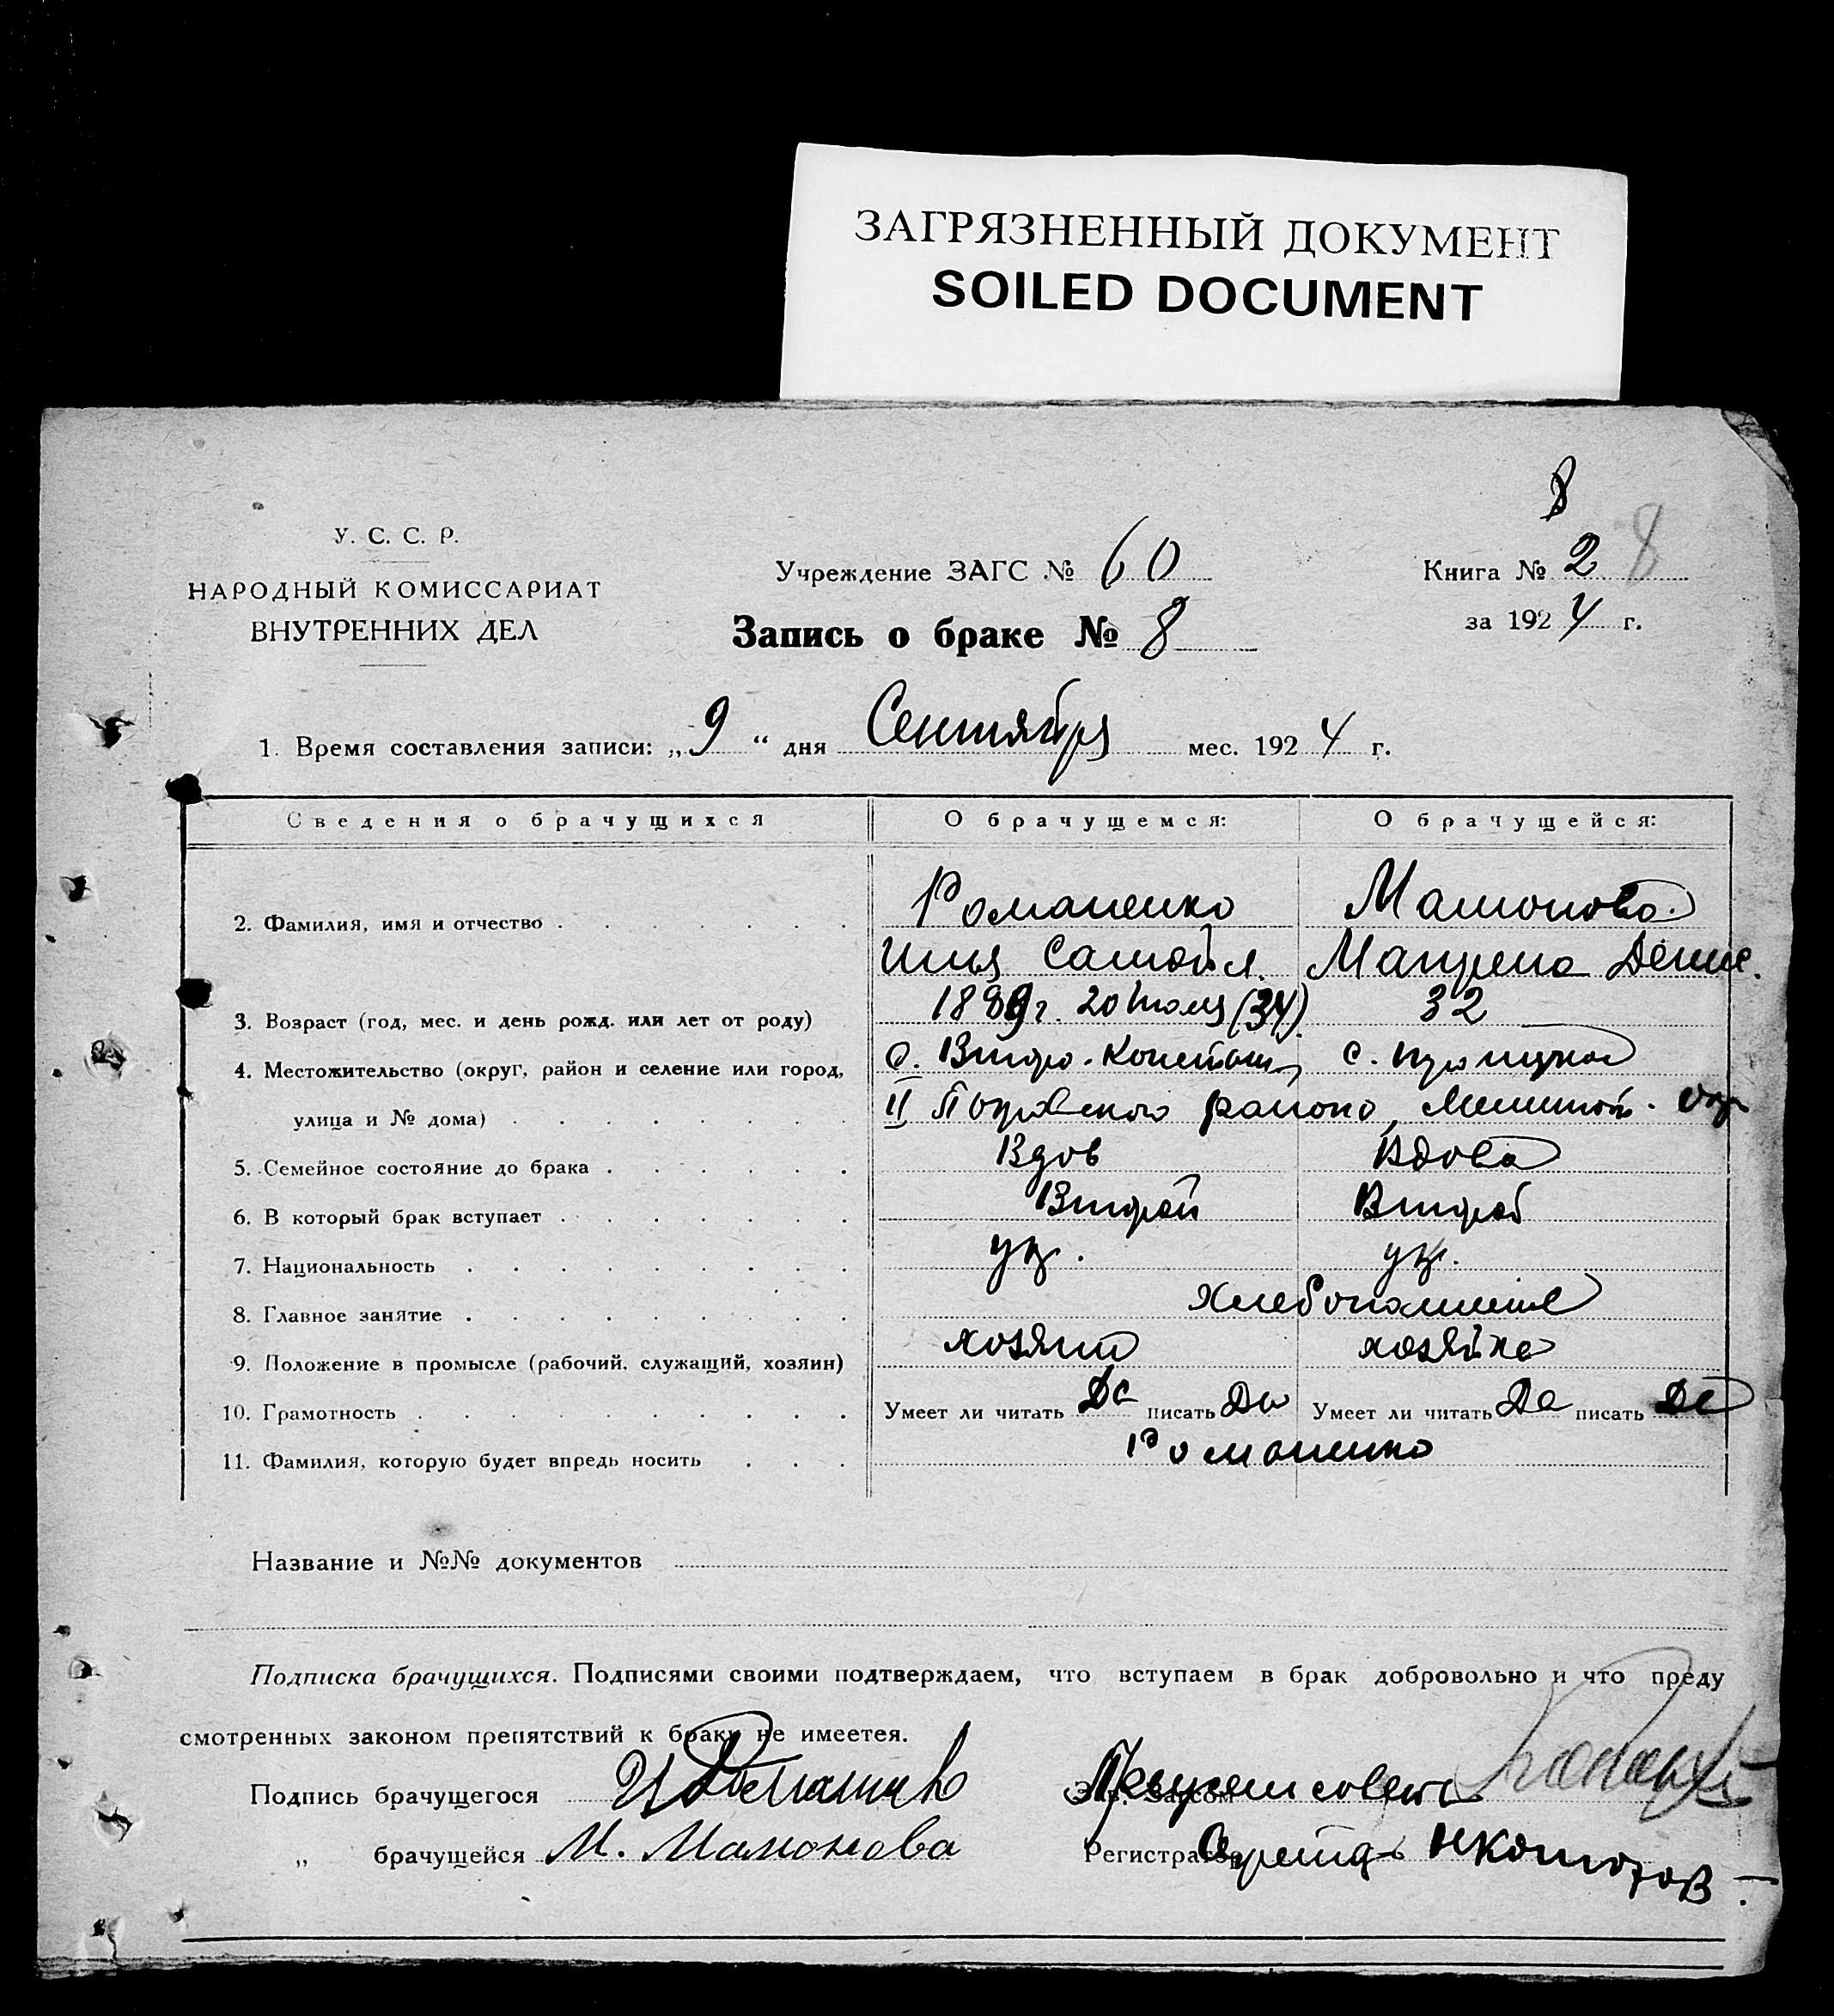 ЗАГРЯЗНЕННЫЙ ДОКУМЕНТ
SOILED DOCUMENT
8
У. С. С. Р.
НАРОДНЫЙ КОМИССАРИАТ
ВНУТРЕННИХ ДЕЛ
Учреждение ЗАГС № 60
Книга № 2 8
Запись о браке № 8
за 1924 г.
1. Время составления записи: „9“ дня Сентября мес. 1924 г.
Сведения о брачущихся О брачущемся: О брачущейся:
2. Фамилия, имя и отчество Романенко Мамонова
Илья Самойл.
3. Возраст (год, мес. и день рожд. или лет от роду) 20 Июля (34) 32
4. Местожительство (округ, район и селение или город, с. с.
улица и № дома) II района,
5. Семейное состояние до брака Вдов Вдова
6. В который брак вступает Второй Второй
7. Национальность ук. ук.
8. Главное занятие
9. Положение в промысле (рабочий, служащий, хозяин) хозяин хозяйка
10. Грамотность Умеет ли читать Да писать Да Умеет ли читать Да писать Да
11. Фамилия, которую будет впредь носить Романенко
Название и №№ документов
Подписка брачущихся. Подписями своими подтверждаем, что вступаем в брак добровольно и что преду
смотренных законом препятствий к браку не имеетея.
Подпись брачущегося
„ брачущейся М. Мамонова Регистратор